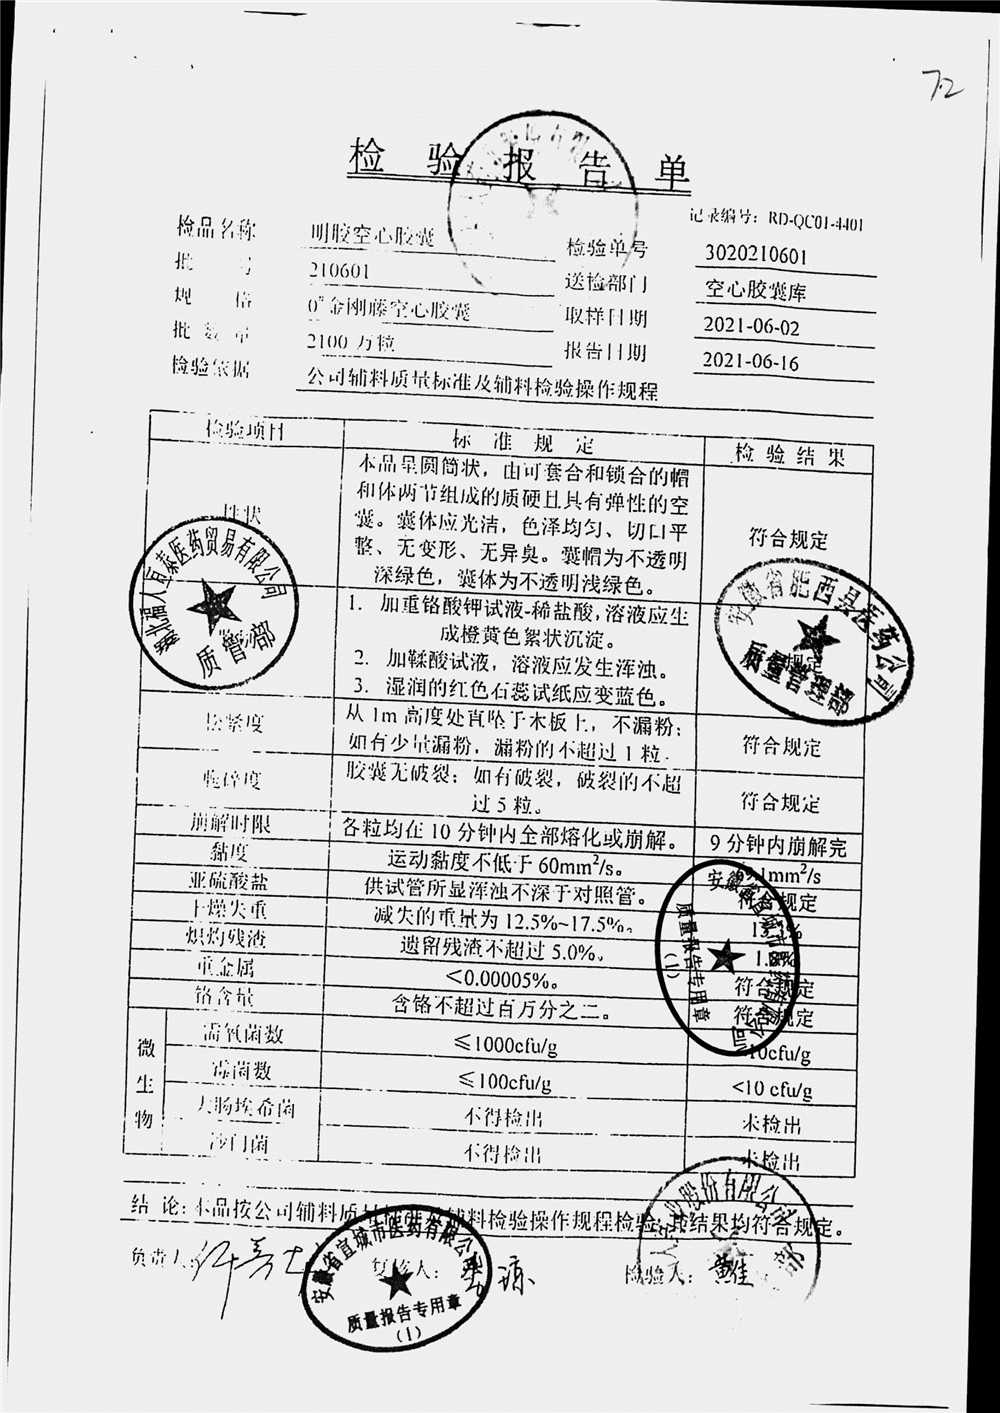 72
检验报告单
记录编号：RD-QC01-4401
检品名称 明胶空心胶囊 检验单号 3020210601
批号 210601 送检部门 空心胶囊库
规格 0#金刚藤空心胶囊 取样日期 2021-06-02
批数量 2100 万粒 报告日期 2021-06-16
检验依据 公司辅料质量标准及辅料检验操作规程
检验项目 标准规定 检验结果
性状 本品呈圆筒状，由可套合和锁合的帽
和体两节组成的质硬且具有弹性的空
囊。囊体应光洁，色泽均匀、切口平
整、无变形、无异臭。囊帽为不透明
深绿色，囊体为不透明浅绿色。
符合规定
1. 加重铬酸钾试液-稀盐酸,溶液应生
成橙黄色絮状沉淀。
2. 加鞣酸试液，溶液应发生浑浊。
3. 湿润的红色石蕊试纸应变蓝色。
规定
松紧度 从 1m 高度处直坠于木板上，不漏粉；
如有少量漏粉，漏粉的不超过 1 粒.
符合规定
脆碎度 胶囊无破裂；如有破裂，破裂的不超
过 5 粒。
符合规定
崩解时限 各粒均在 10 分钟内全部熔化或崩解。 9 分钟内崩解完
黏度 运动黏度不低于 60mm²/s。 1mm²/s
亚硫酸盐 供试管所显浑浊不深于对照管。 符合规定
干燥失重 减失的重量为 12.5%~17.5%。
炽灼残渣 遗留残渣不超过 5.0%。
重金属 <0.00005%。 符合规定
铬含量 含铬不超过百万分之二。 符合规定
微生物
需氧菌数 ≤1000cfu/g 10cfu/g
霉菌数 ≤100cfu/g <10 cfu/g
大肠埃希菌 不得检出 未检出
沙门菌 不得检出 未检出
结 论: 本品按公司辅料质量标准及辅料检验操作规程检验,其结果均符合规定。
负责人: 复核人: 检验人:
湖北福人百泰医药贸易有限公司
质管部
安徽省肥西县医药公司
质量管理部
质量报告专用章
(1)
安徽省宣城市医药有限公司
质量报告专用章
(1)
股份有限公司
部